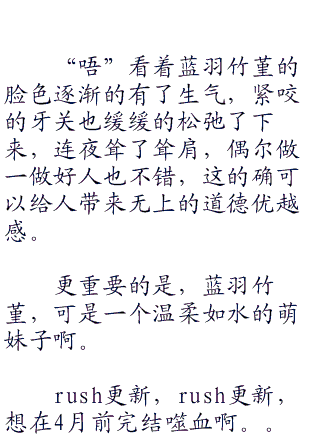 “唔”看着蓝羽竹堇的
脸色逐渐的有了生气，紧咬
的牙关也缓缓的松弛了下
来，连夜耸了耸肩，偶尔做
一做好人也不错，这的确可
以给人带来无上的道德优越
感。
更重要的是，蓝羽竹
堇，可是一个温柔如水的萌
妹子啊。
rush更新，rush更新，
想在4月前完结噬血啊。。